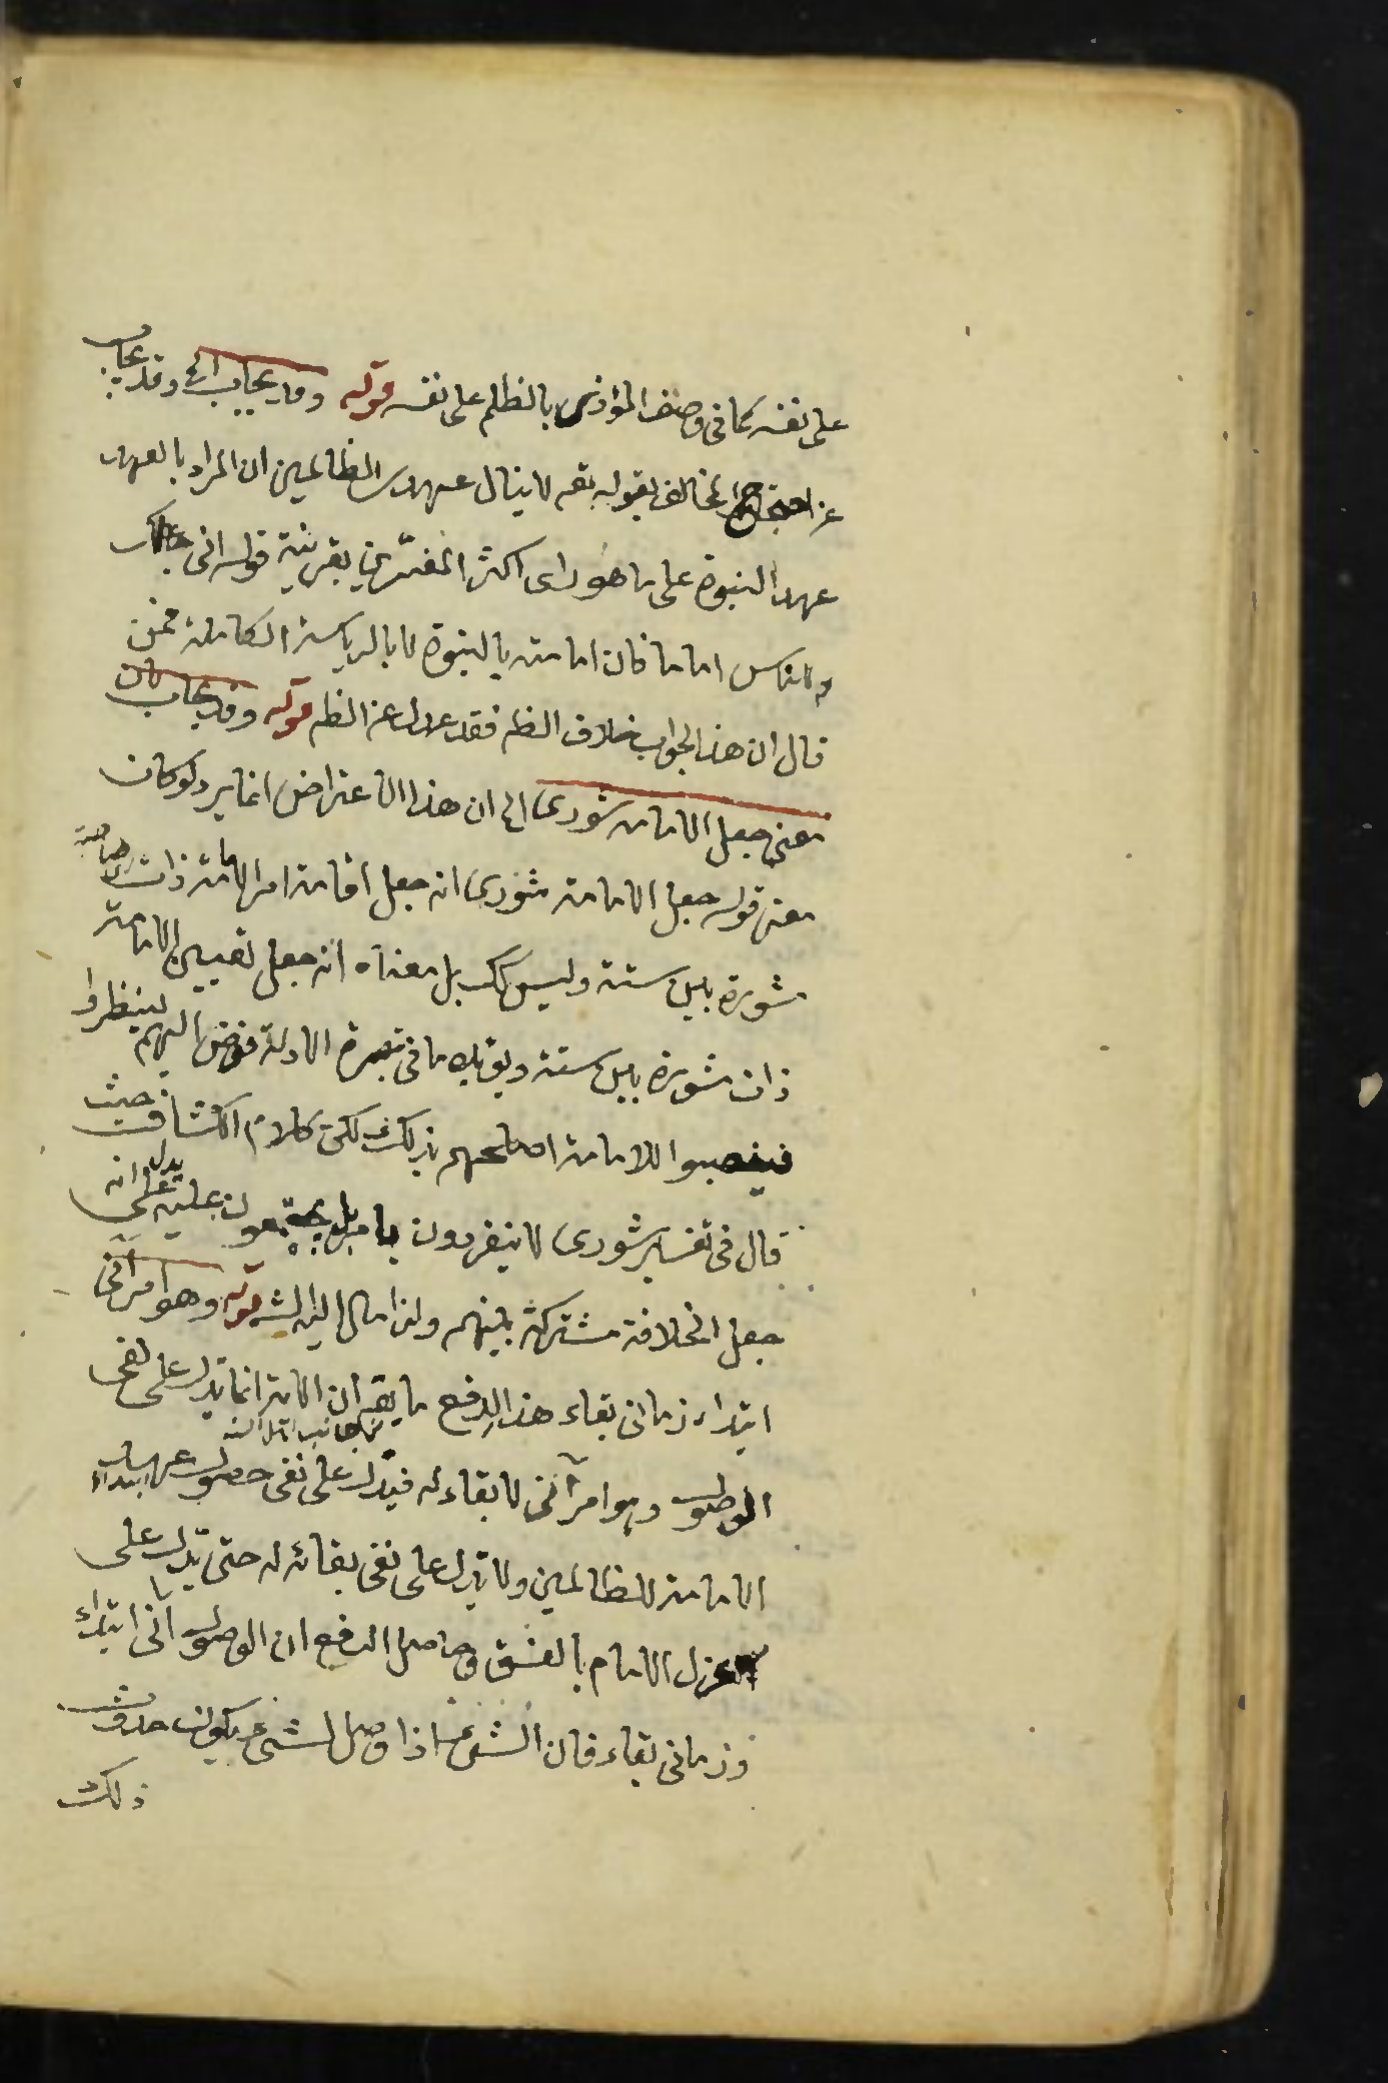 على نفسه كما فى وصف المؤذى بالظلم على نفسه قوله وقد يجاب الخ وقد يجاب
عن احتجاج المخالف بقوله تعه لا ينال عهدى الظالمين ان المراد بالعهد
عهد النبوة على ما هو راى اكثر المفسرين بقرينة قوله انى جاعلك
للناس اماما فان امامته بالنبوة لا بالرياسة الكاملة فمن
قال ان هذا الجواب خلاف الظه فقد عدل عن الظه قوله وقد يجاب بان
معنى جعل الامامة شورى الخ ان هذا الاعتراض انما يرد لو كان
معنى قوله جعل الامامة شورى انه جعل اقامة امر الامامة ذات
مشورة بين ستة وليس كك بل معناه انه جعل تعيين الامامة
ذات مشورة بين ستة ويؤيده ما فى تبصرة الادلة فوض اليهم لينظروا
فينصبوا للامامة اصلحهم بذلك لكن كلام الكشاف حيث
قال فى تفسير شورى لا ينفردون بل يجتمعون عليه يدل على انه
جعل الخلافة مشتركة بينهم ولذا مال اليه الشه قوله وهو امر آنى
ابتداء زمانى بقاء هذا الدفع ما يقه ان الآية انما تدل على نفى
الوصول وهو امر آنى لا بقاء له فيدل على نفى حصول عهد ابتداء
الامامة للظالمين ولا تدل على نفى بقائه له حتى تدل على
عزل الامام بالفسق وحاصل الدفع ان الوصول آنى ابتداء
وزمانى بقاء فان الشئ اذا وصل لشئ يكون حدوث
ذلك